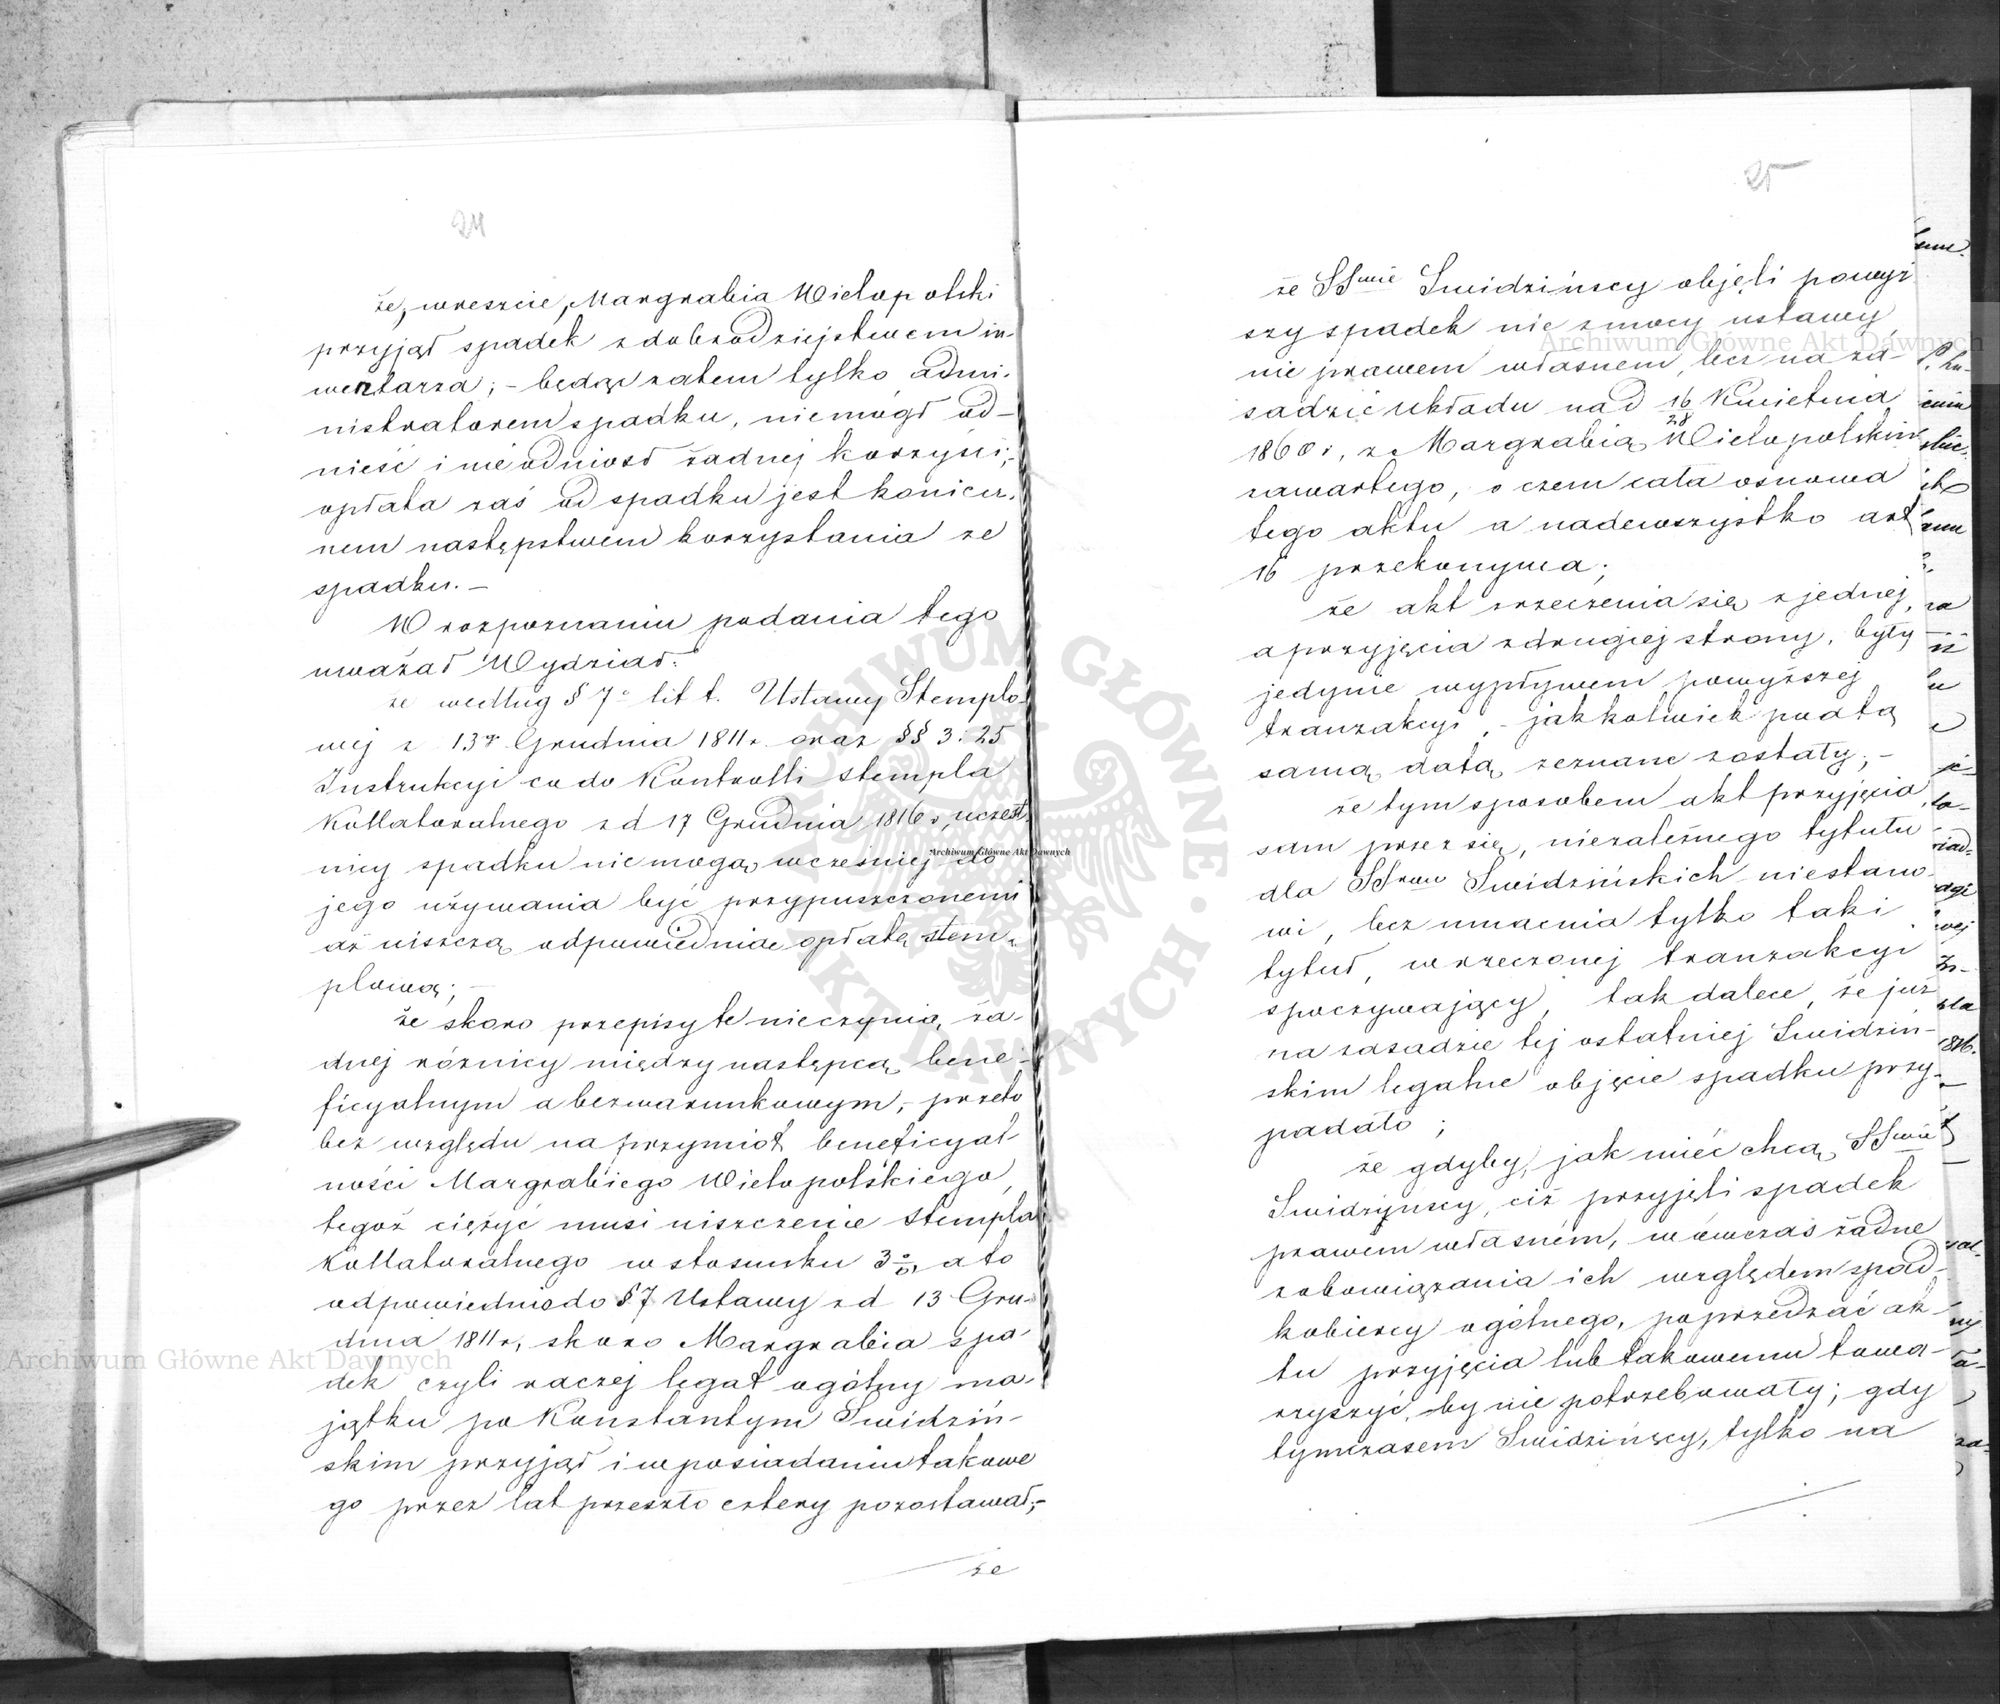 24
że, wreszcie, Margrabia Wielopolski
przyjął spadek z dobrodziejstwem in-
wentarza; – będąc zatem tylko admi-
nistratorem spadku, niemógł od-
nieść i nie odniosł żadnej korzyści;–
opłata zaś od spadku jest koniecz-
nem następstwem korzystania ze
spadku. –
W rozpoznaniu podania tego
uważał Wydział:
że według § 7° lit t. Ustawy Stemplo-
wej z 13go Grudnia 1811 r. oraz §§ 3 i 25
Instrukcyi co do Kontrolli stempla
Kollateralnego z d 17 Grudnia 1816 r., uczest-
nicy spadku niemogą wcześniej do
jego używania być przypuszczonemi
aż uiszczą odpowiednie opłatę stem-
plową; –
że skoro przepisy te nieczynią, ża-
dnej różnicy między następcą bene-
ficyalnym a bezwarunkowym, – przeto
bez względu na przymiot beneficyal-
ności Margrabiego Wielopolskiego,
tegoż ciężyć musi uiszczenie stempla
Kollateralnego w stosunku 3 %, a to
odpowiednio do § 7 Ustawy z d 13 Gru-
dnia 1811 r., skoro Margrabia spa-
dek czyli raczej legat ogólny ma-
jątku po Konstantym Swidziń-
skim przyjął i w posiadaniu takowe
go przez lat przeszło cztery pozostawał;–
że
25
że SSwie Swidzińscy objęli powyż
szy spadek nie z mocy ustawy
nie prawem własnem, lecz na za-
sadzie układu na d 16/28 Kwietnia
1860 r., z Margrabią Wielopolskim
zawartego, o czem cała osnowa
tego aktu a nadewszystko art
16 przekonywa;
że akt zrzeczenia się z jednej,
a przyjęcia z drugiej strony, były
jedynie wypływem powyższej
tranzakcyi, – jakkolwiek pod tą
samą datą zeznane zostały; –
że tym sposobem akt przyjęcia,
sam przez się, niezależnego tytułu
dla SSrow Swidzińskich niestano-
wi, lecz umacnia tylko taki
tytuł, w rzeczonej tranzakcyi
spoczywający, tak dalece, że już
na zasadzie tej ostatniej Swidziń-
skim legalne objęcie spadku przy-
padało;
że gdyby, jak mieć chcą, SSwie
Swidzińscy, ciż przyjęli spadek
prawem własném, wówczas żadne
zobowiązania ich względem spad-
kobiercy ogólnego, poprzedzać ak-
tu przyjęcia lub takowemu towa-
rzyszyć, by nie potrzebowały; gdy
tymczasem Swidzińscy, tylko na
Archiwum Główne Akt Dawnych
Archiwum Główne Akt Dawnych
Archiwum Główne Akt Dawnych
ARCHIWUM GŁÓWNE AKT DAWNYCH